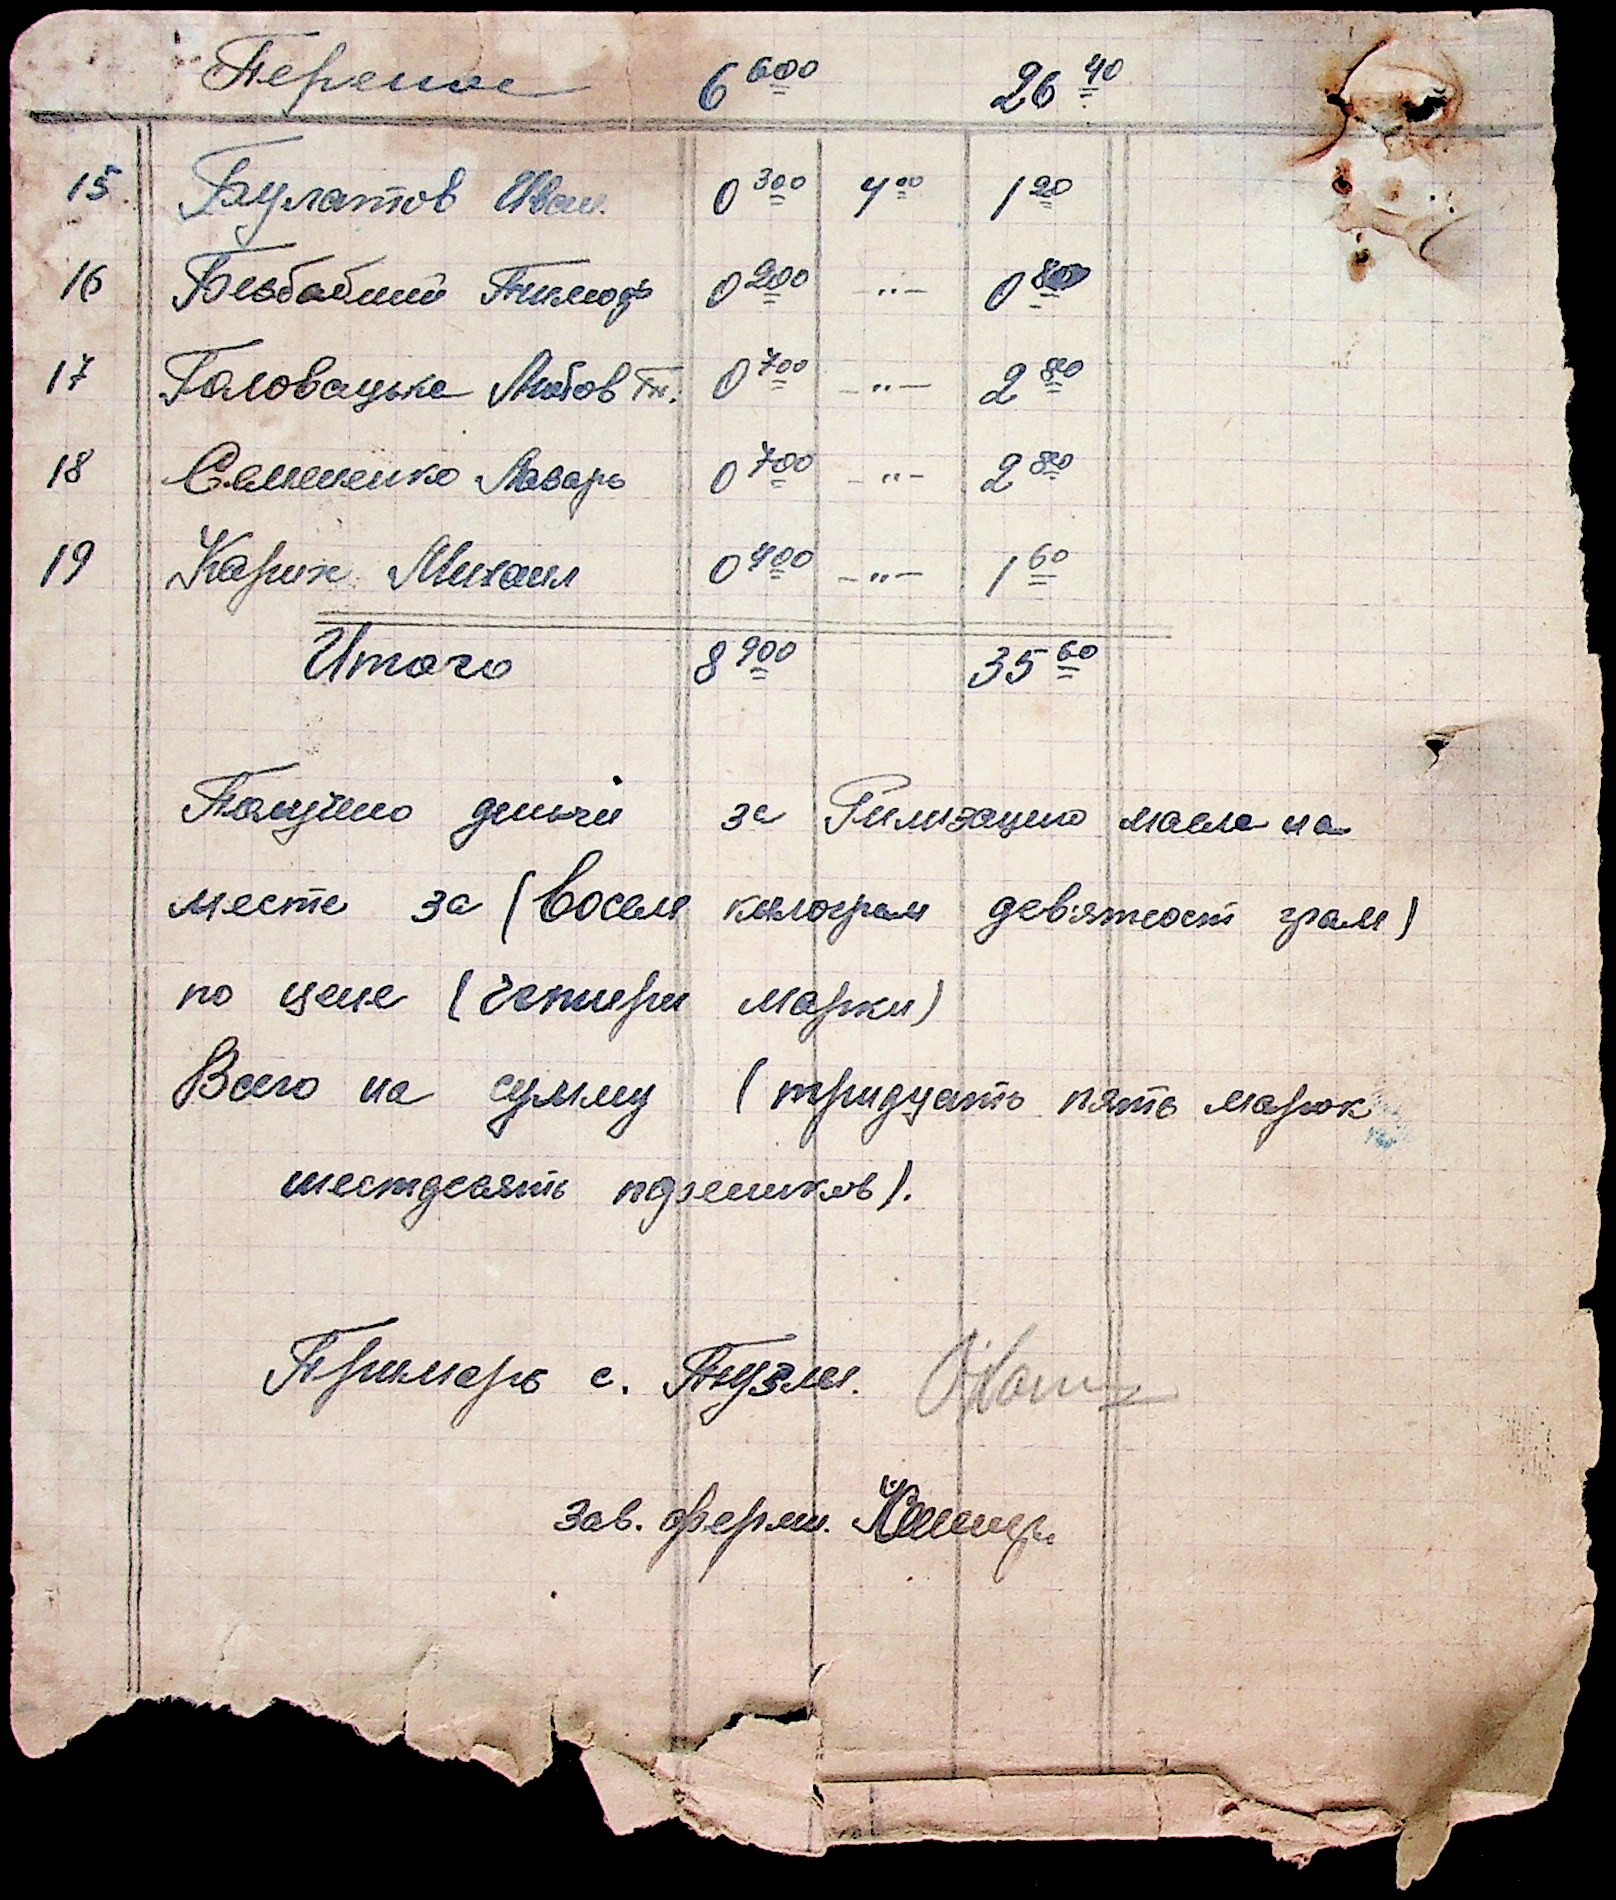 Перенос 6 600 26 40
15 Булатов Иван 0 300 4 00 1 20
16 Безбабний Тимофь 0 200 -"- 0 80
17 Головацька Любов Гн. 0 700 -"- 2 80
18 Семененко Лазарь 0 700 -"- 2 80
19 Карик Михаил 0 400 -"- 1 60
Итого 8 900 35 60
Получено деньги за Рилизацию масла на
месте за (восем килограм девятьсот грам)
по цене (четири марки)
Всего на сумму (тридцать пять марок
шестдесять пфеников).
Примарь с. Пузли.
зав. ферми.